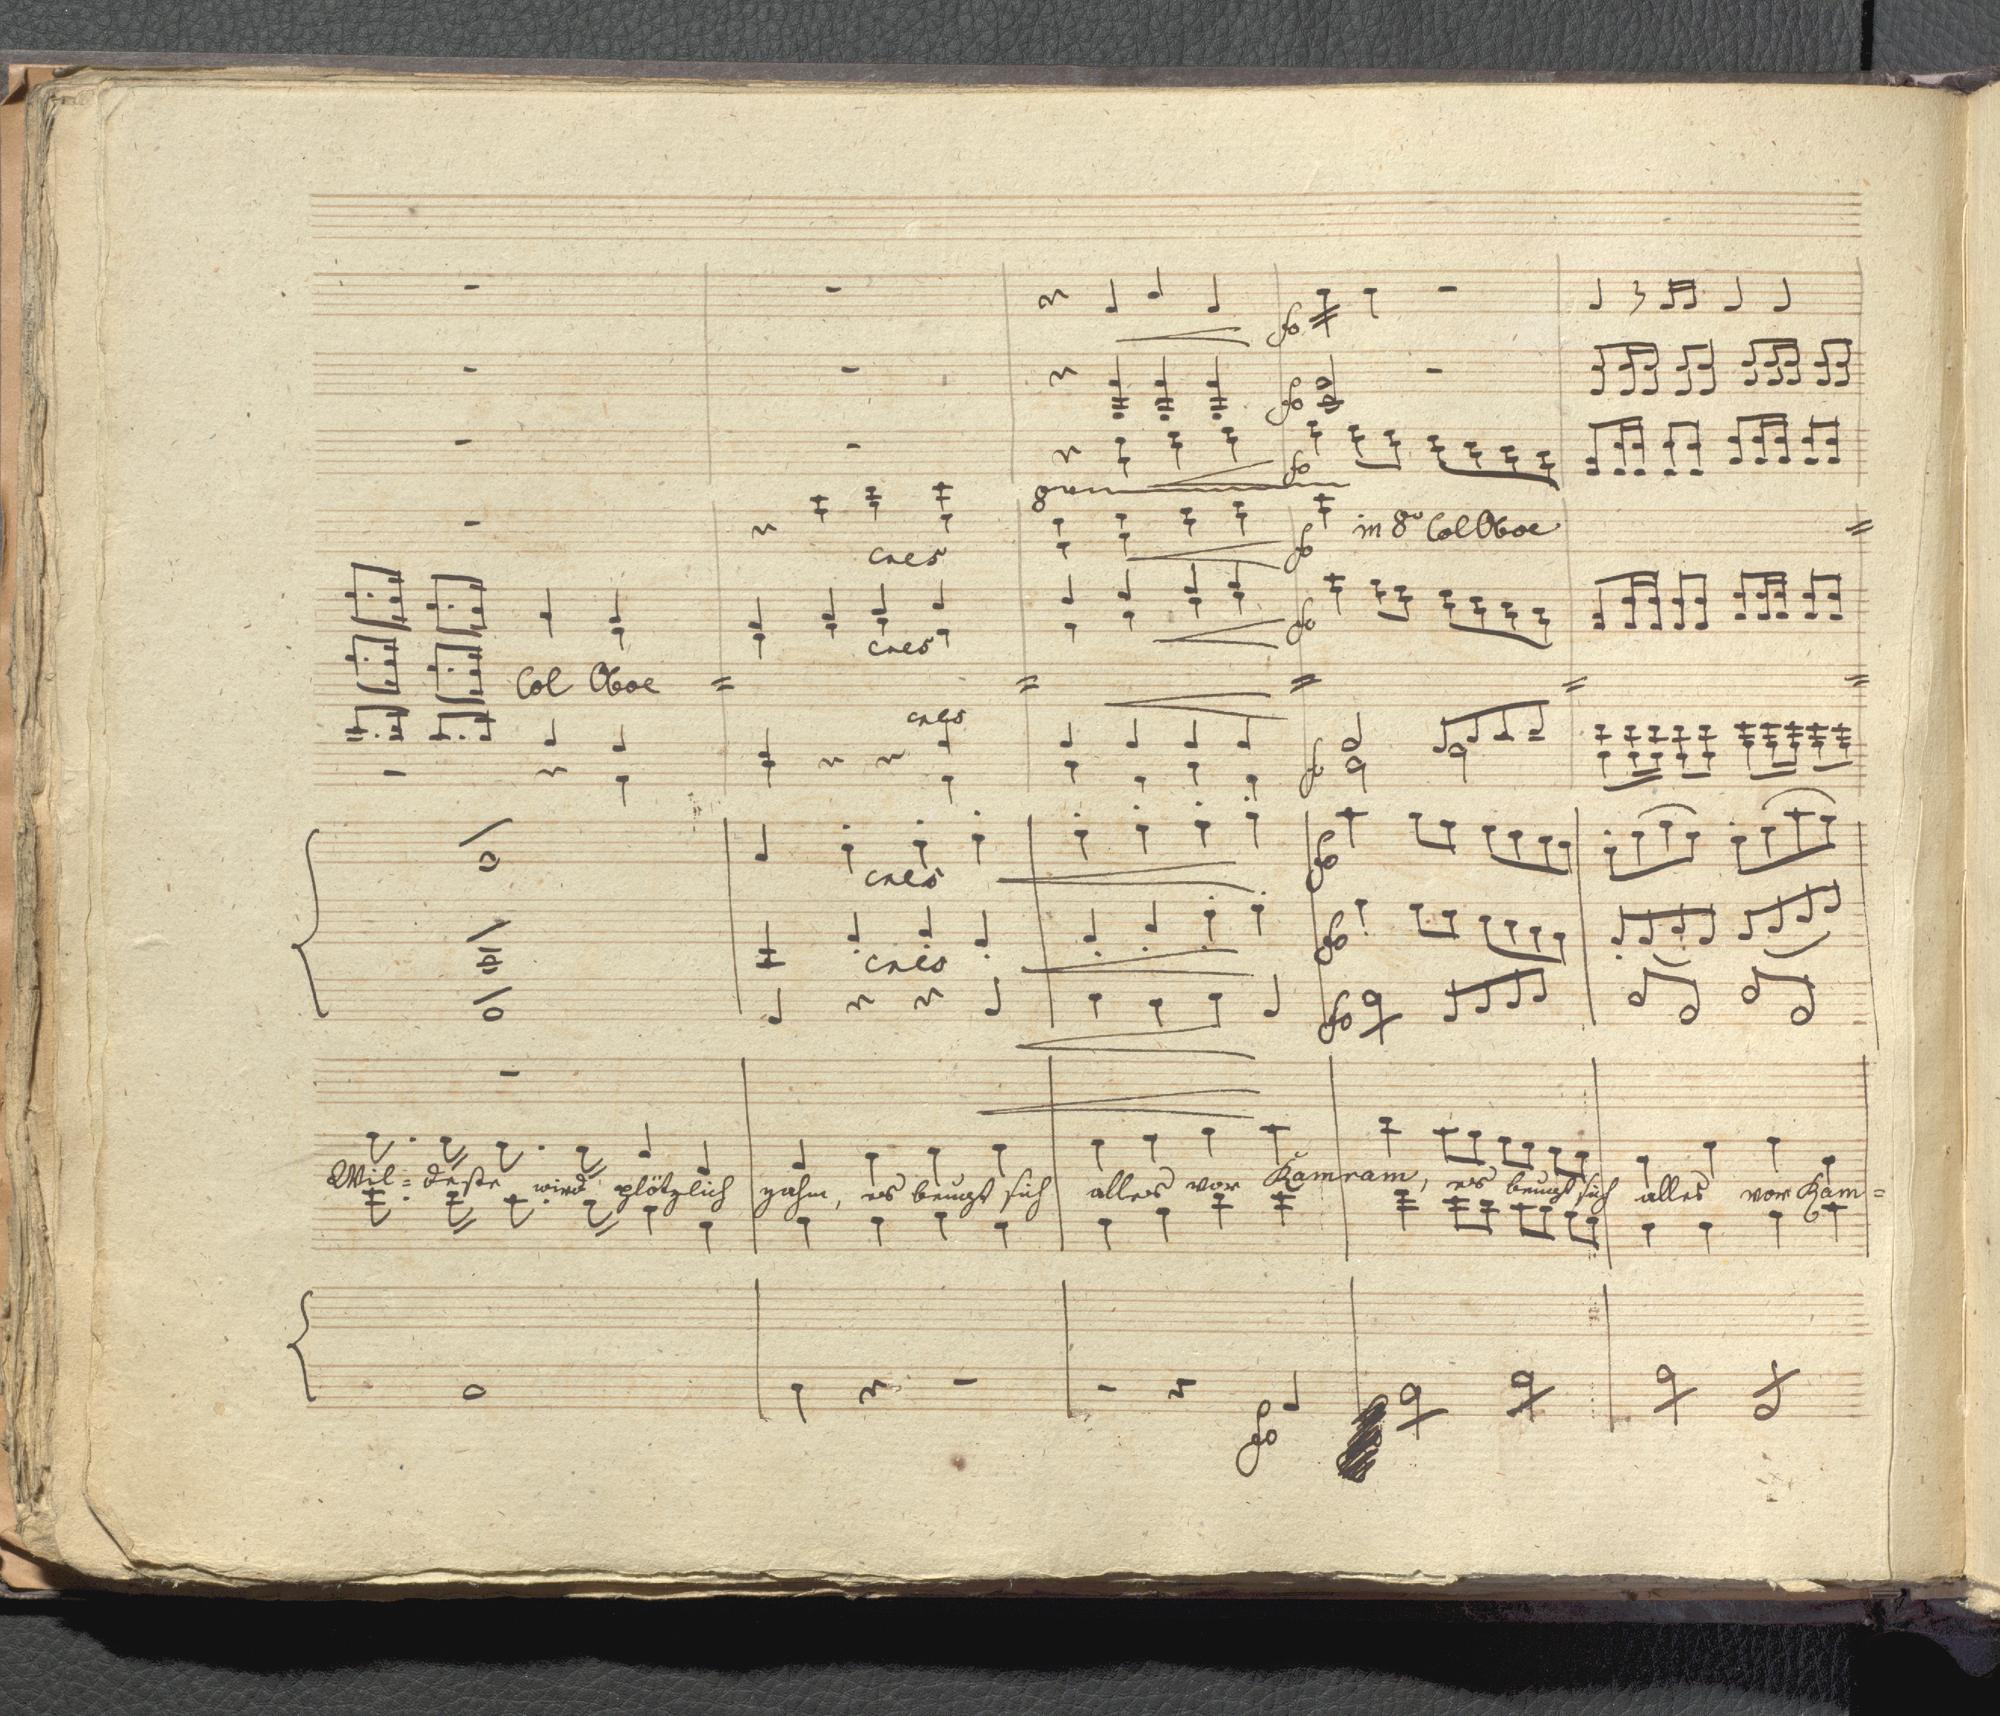 fo
fo
fo
8va
cres
fo
in 8o Col Oboe
cres
fo
Col Oboe
cres
fo
cres
fo
cres
fo
fo
Wil= deste wird plötzlich zahm, es beugt sich alles vor Kamram, es beugt sich alles vor Kam=
fo